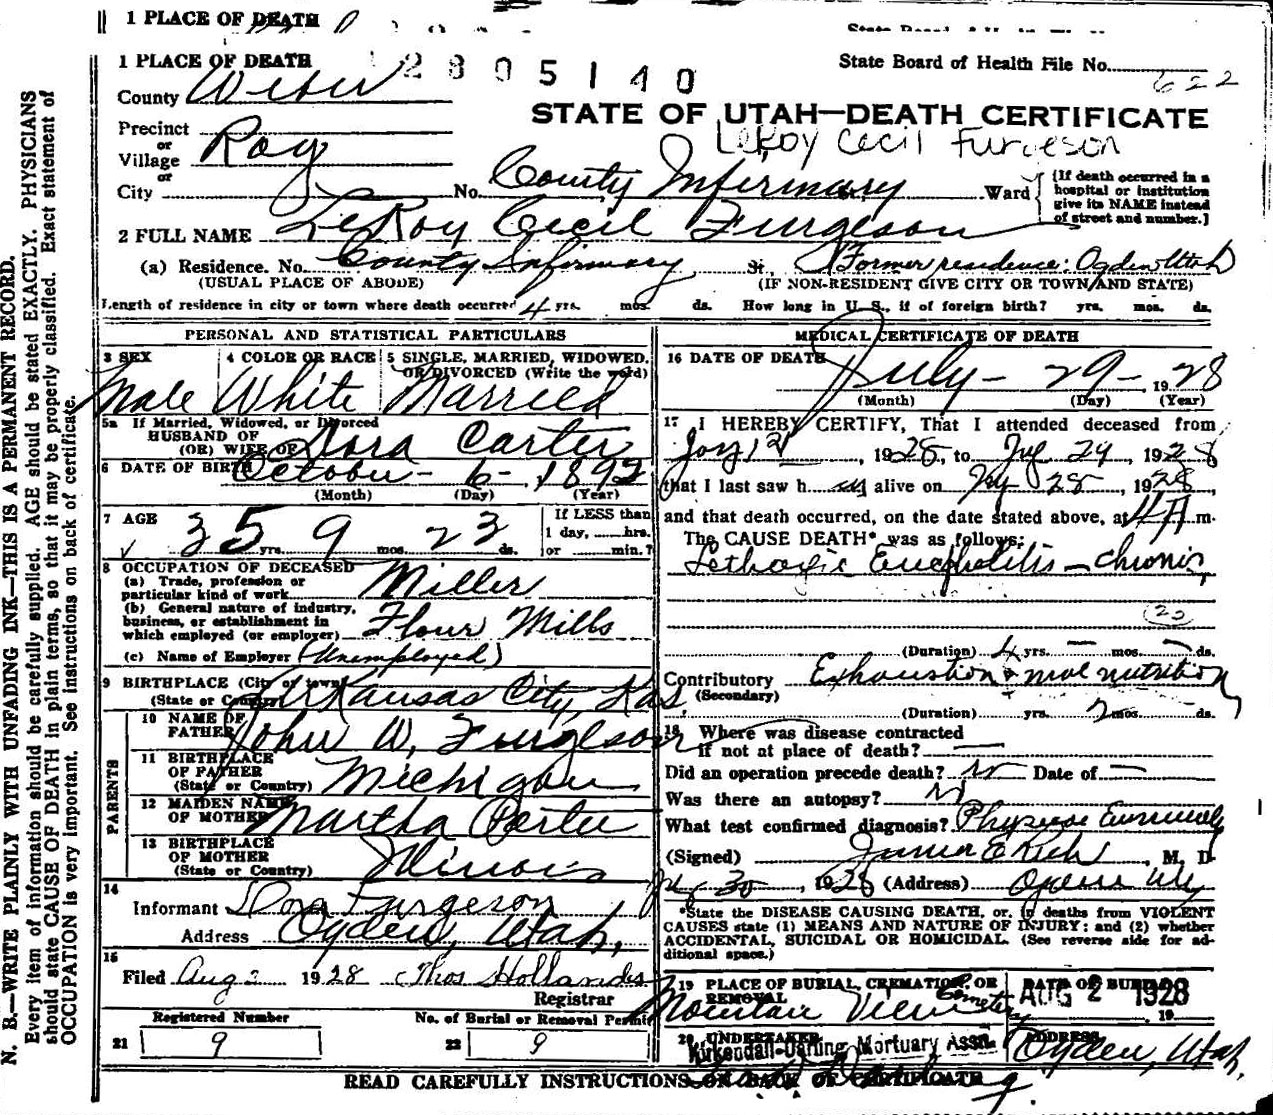 1 PLACE OF DEATH
1 PLACE OF DEATH 2805140 State Board of Health File No. 622
County Weber
STATE OF UTAH—DEATH CERTIFICATE
Precinct
or
Village Roy
LeRoy Cecil Furgeson
or
City No. County Infirmary Ward
[If death occurred in a hospital or institution give its NAME instead of street and number.]
2 FULL NAME LeRoy Cecil Furgeson
(a) Residence. No. County Infirmary St. Former residence: Ogden Utah
(USUAL PLACE OF ABODE) (IF NON-RESIDENT GIVE CITY OR TOWN AND STATE)
Length of residence in city or town where death occurred 4 yrs. mos. ds. How long in U. S., if of foreign birth? yrs. mos. ds.
PERSONAL AND STATISTICAL PARTICULARS
3 SEX 4 COLOR OR RACE 5 SINGLE, MARRIED, WIDOWED, OR DIVORCED (Write the word)
Male White Married
5a If Married, Widowed, or Divorced
HUSBAND OF
(OR) WIFE OF Dora Carter
6 DATE OF BIRTH October - 6 - 1892
(Month) (Day) (Year)
7 AGE 35 yrs. 9 mos. 23 ds.
If LESS than 1 day, hrs. or min.?
8 OCCUPATION OF DECEASED
(a) Trade, profession or particular kind of work Miller
(b) General nature of industry, business, or establishment in which employed (or employer) Flour Mills
(c) Name of Employer (Unemployed)
9 BIRTHPLACE (City or town)
(State or Country) Arkansas City, Kas.
PARENTS
10 NAME OF FATHER John W. Furgleson
11 BIRTHPLACE OF FATHER
(State or Country) Michigan
12 MAIDEN NAME OF MOTHER Martha
13 BIRTHPLACE OF MOTHER
(State or Country) Illinois
14
Informant Dora Furgeson
Address Ogden, Utah,
15
Filed Aug 1928 Thos Hollands
Registrar
Registered Number No. of Burial or Removal Permit
21 9 22 9
MEDICAL CERTIFICATE OF DEATH
16 DATE OF DEATH July - 29 - 1928
(Month) (Day) (Year)
17 I HEREBY CERTIFY, That I attended deceased from
1928, to 29 1928
that I last saw h alive on 28, 1928,
and that death occurred, on the date stated above, at m.
The CAUSE DEATH* was as follows:
Lethargic Encephalitis — chronic,
(Duration) 4 yrs. — mos. ds.
Contributory Exhaustion + mal nutrition
(Secondary)
(Duration) yrs. 2 mos. ds.
18 Where was disease contracted
if not at place of death? —
Did an operation precede death? no Date of —
Was there an autopsy? no
What test confirmed diagnosis? Physical
(Signed) , M. D.
30, 1928 (Address) Ogden
*State the DISEASE CAUSING DEATH, or, in deaths from VIOLENT
CAUSES state (1) MEANS AND NATURE OF INJURY; and (2) whether
ACCIDENTAL, SUICIDAL OR HOMICIDAL. (See reverse side for ad-
ditional space.)
19 PLACE OF BURIAL, CREMATION, OR REMOVAL DATE OF BURIAL
Mountain View Cemetery AUG 2 1928 19
20 UNDERTAKER ADDRESS
Kirkendall-Darling Mortuary Assn. Ogden, Utah.
READ CAREFULLY INSTRUCTIONS ON BACK OF CERTIFICATE
N. B.—WRITE PLAINLY WITH UNFADING INK—THIS IS A PERMANENT RECORD.
Every item of information should be carefully supplied. AGE should be stated EXACTLY. PHYSICIANS
should state CAUSE OF DEATH in plain terms, so that it may be properly classified. Exact statement of
OCCUPATION is very important. See instructions on back of certificate.